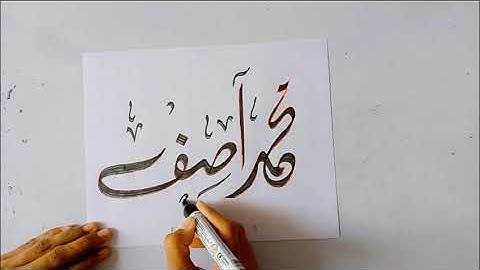 محمد آصف